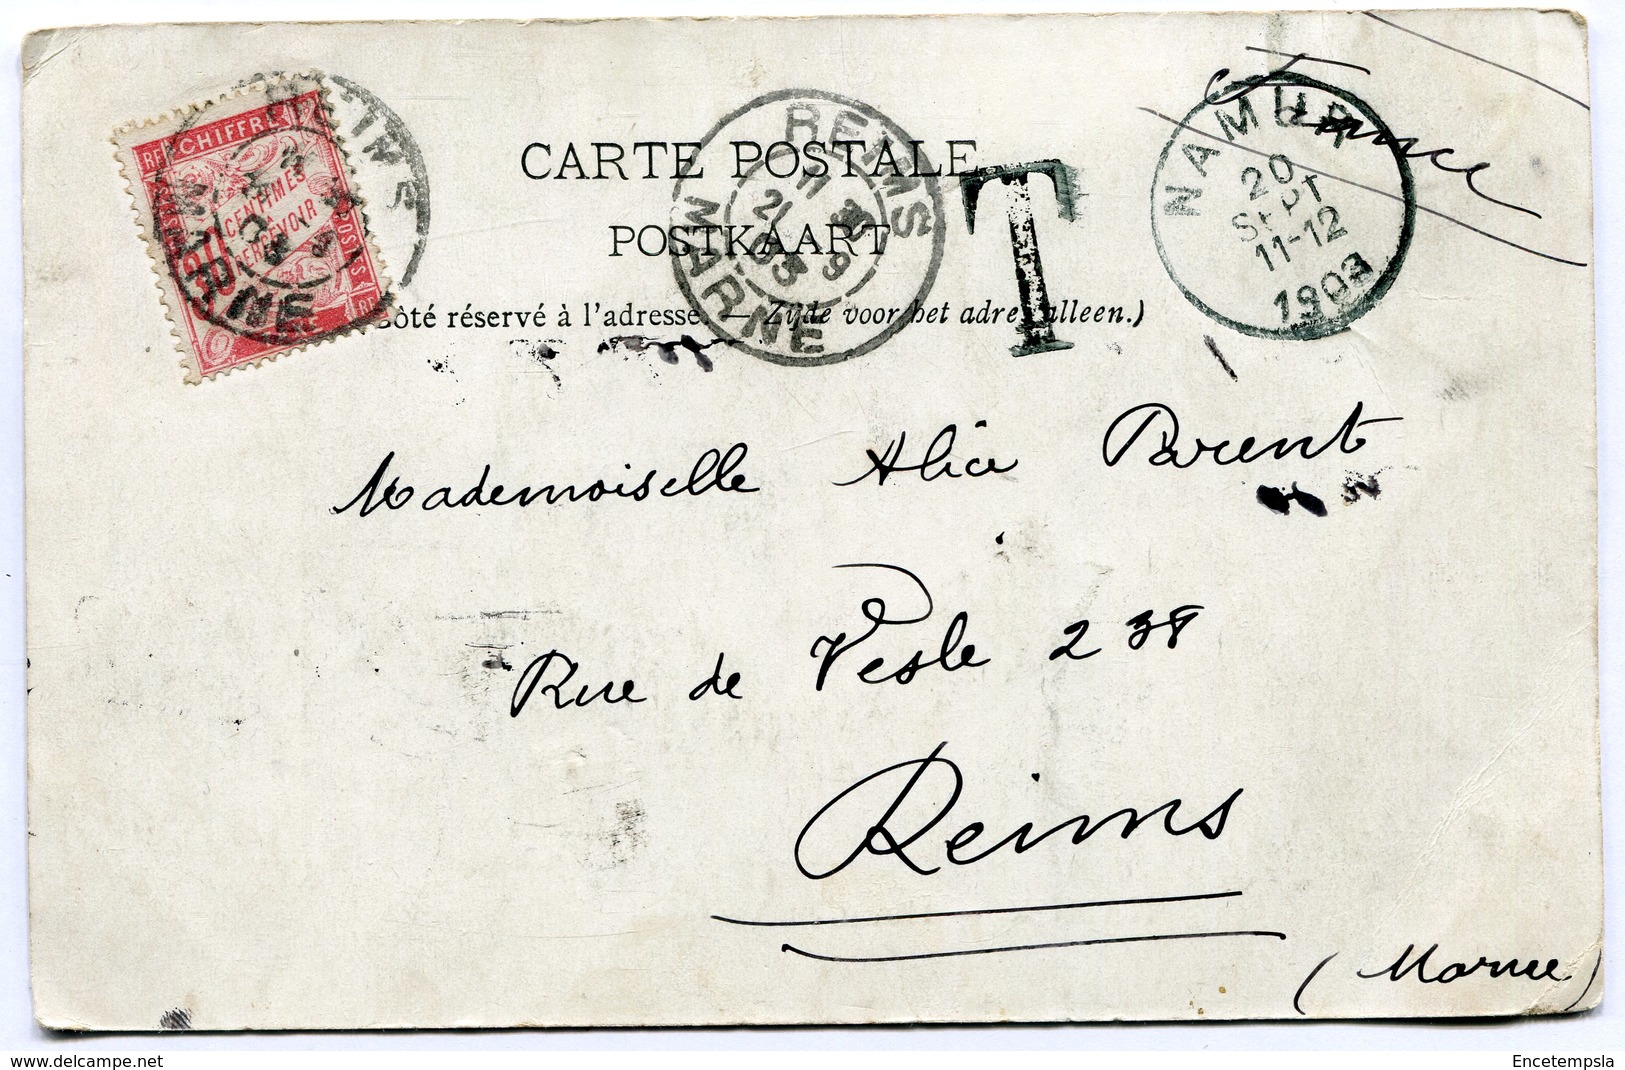 France
CHIFFRE
CENTIMES
À PERCEVOIR
POSTES
RF
RF
30
REIMS
MARNE
CARTE POSTALE
POSTKAART
Côté réservé à l'adresse. — Zijde voor het adres alleen.)
REIMS
11 30
21 9
03
MARNE
T
NAMUR
20
SEPT
11-12
1903
Mademoiselle Alice Parent
Rue de Vesle 238
Reims
(Marne)
www.delcampe.net
Encetempsla